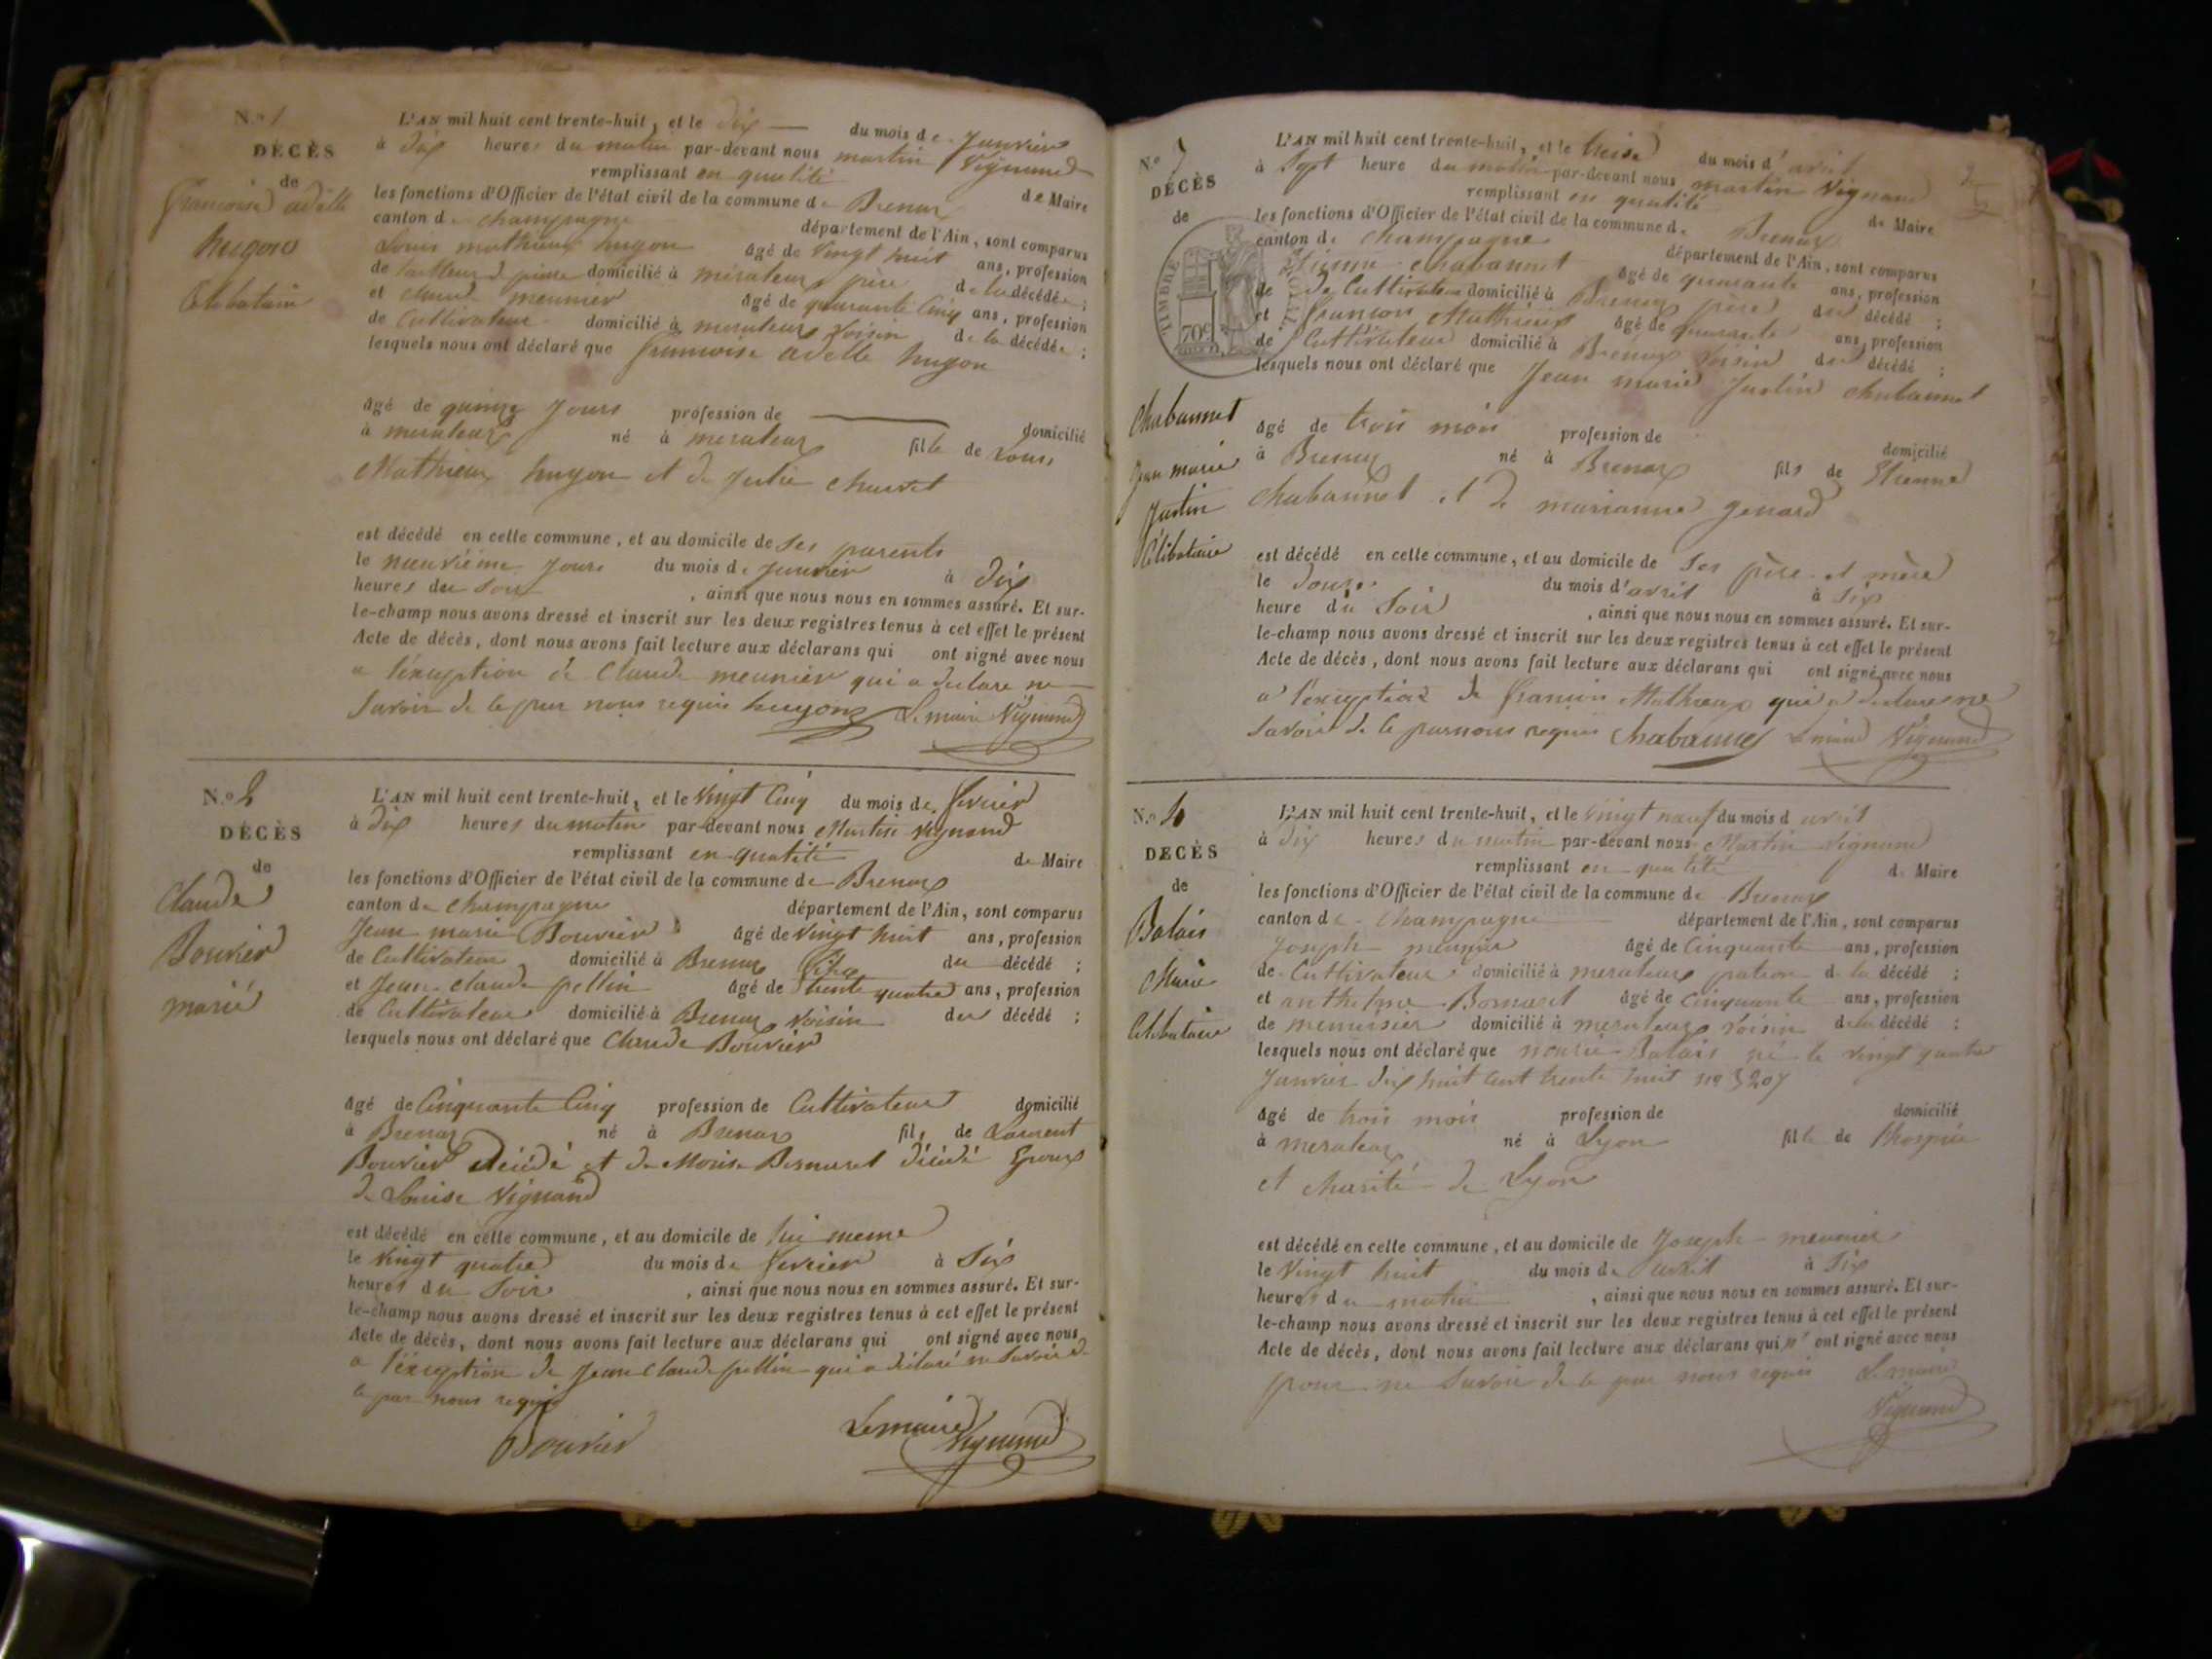 N.º 1
DÉCÈS
de
Francoise adelle
hugon
Celibataire
L'AN mil huit cent trente-huit, et le dix du mois de Janvier
à dix heures du matin par-devant nous martin Vignand
remplissant en qualité de Maire
les fonctions d'Officier de l'état civil de la commune de Brenaz
canton de champagne département de l'Ain, sont comparus
Louis mathieux hugon âgé de vingt huit ans, profession
de tailleur de pierre domicilié à méraleaz père de la décédée ;
et claude meunier âgé de quarante cinq ans, profession
de Cultivateur domicilié à meraleaz voisin de la décédée ;
lesquels nous ont déclaré que francoise adelle hugon
âgé de quinze Jours profession de domicilié
à meraleaz né à meraleaz fille de Louis
Mathieux hugon et de Julie charvet
est décédé en cette commune, et au domicile de ses parents
le neuvième Jours du mois de Janvier à dix
heures du soir, ainsi que nous nous en sommes assuré. Et sur-
le-champ nous avons dressé et inscrit sur les deux registres tenus à cet effet le présent
Acte de décès, dont nous avons fait lecture aux déclarans qui ont signé avec nous
a l'éxception de Claude meunier qui a declare ne
savoir de le par nous requis hugon Le maire Vignand
N.º 2
DÉCÈS
de
Claude
Bouvier
marié
L'AN mil huit cent trente-huit, et le vingt Cinq du mois de fevrier
à dix heures du matin par-devant nous Martin Vignand
remplissant en qualité de Maire
les fonctions d'Officier de l'état civil de la commune de Brenaz
canton de champagne département de l'Ain, sont comparus
Jean marie Bouvier âgé de vingt huit ans, profession
de Cultivateur domicilié à Brenaz fils du décédé ;
et Jean claude pellin âgé de trente quatre ans, profession
de Cultivateur domicilié à Brenaz voisin du décédé ;
lesquels nous ont déclaré que Claude Bouvier
âgé de Cinquante Cinq profession de Cultivateur domicilié
à Brenaz né à Brenaz fils de Laurent
Bouvier décédé et de Bornaret décédé Epoux
de Louise Vignand
est décédé en cette commune, et au domicile de lui meme
le vingt quatre du mois de fevrier à Six
heures du Soir, ainsi que nous nous en sommes assuré. Et sur-
le-champ nous avons dressé et inscrit sur les deux registres tenus à cet effet le présent
Acte de décès, dont nous avons fait lecture aux déclarans qui ont signé avec nous
a l'éxception de Jean claude pellin qui a déclaré ne savoir de
le par nous requis
Bouvier Lemaire Vignand
N.º 3
DÉCÈS
de
TIMBRE ROYAL
70c
Chabannet
Jean marie
Justin
Célibataire
L'AN mil huit cent trente-huit, et le treise du mois d'avril
à Sept heure du matin par-devant nous martin Vignand
remplissant en qualité de Maire
les fonctions d'Officier de l'état civil de la commune de Brenaz
canton de champagne département de l'Ain, sont comparus
Etienne chabannet âgé de quarante ans, profession
de de Cultivateur domicilié à Brenaz père du décédé ;
et francois Mathieux âgé de quarante ans, profession
de Cultivateur domicilié à Brenaz voisin du décédé ;
lesquels nous ont déclaré que Jean marie Justin chabannet
âgé de trois mois profession de domicilié
à Brenaz né à Brenaz fils de Etienne
chabannet et de marianne genard
est décédé en cette commune, et au domicile de ses père et mère
le douze du mois d'avril à six
heure du Soir, ainsi que nous nous en sommes assuré. Et sur-
le-champ nous avons dressé et inscrit sur les deux registres tenus à cet effet le présent
Acte de décès, dont nous avons fait lecture aux déclarans qui ont signé avec nous
a l'exception de francois Mathieux qui a declare ne
savoir de le par nous requis Chabannet Le maire Vignand
N.º 4
DÉCÈS
de
Balais
Marie
Celibataire
L'AN mil huit cent trente-huit, et le vingt neuf du mois d avril
à dix heures du matin par-devant nous Martin Vignand
remplissant en qualité de Maire
les fonctions d'Officier de l'état civil de la commune de Brenaz
canton de champagne département de l'Ain, sont comparus
Joseph meunier âgé de Cinquante ans, profession
de Cultivateur domicilié à meraleaz patron de la décédé ;
et anthelme Bornaret âgé de cinquante ans, profession
de menuisier domicilié à meraleaz voisin de la décédé ;
lesquels nous ont déclaré que marie Balais né le vingt quatre
Janvier dix huit cent trente huit
âgé de trois mois profession de domicilié
à meraleaz né à Lyon fille de l'hospice
et charité de Lyon
est décédé en cette commune, et au domicile de Joseph meunier
le vingt huit du mois de avril à Six
heures du matin, ainsi que nous nous en sommes assuré. Et sur-
le-champ nous avons dressé et inscrit sur les deux registres tenus à cet effet le présent
Acte de décès, dont nous avons fait lecture aux déclarans qui n' ont signé avec nous
pour ne savoir de le par nous requis Le maire
Vignand